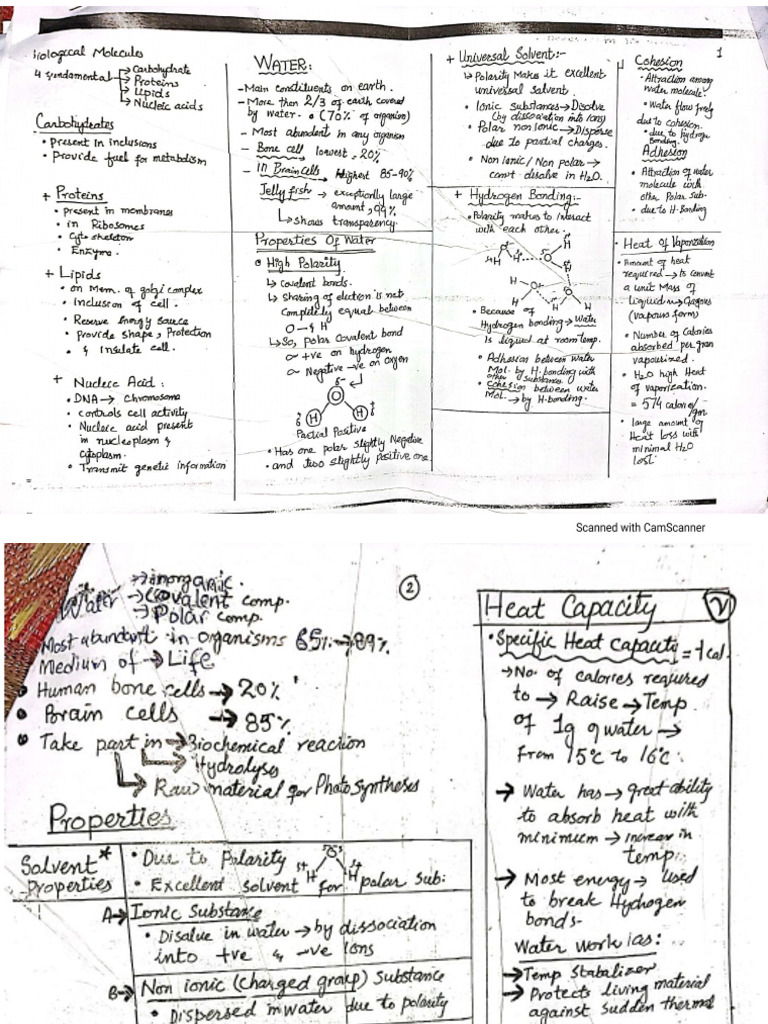 1
Biological Molecules
4 fundamental → Carbohydrate
→ Proteins
→ Lipids
→ Nucleic acids
Carbohydrates
• present in inclusions
• Provide fuel for metabolism
+ Proteins
• present in membranes
• in Ribosomes
• Cyto skeleton
• Enzyme.
+ Lipids
• on Mem. of golgi complex
• Inclusion of cell.
• Reserve Energy source
• provide shape, Protection
• & Insulate cell.
+ Nucleic Acid:
• DNA → chromosome
• controls cell activity
• Nucleic acid present
in nucleoplasm &
cytoplasm.
• Transmit genetic information
WATER:
- Main constituents on earth.
- More then 2/3 of earth covered
by water. • (70% of organism)
- Most abundent in any organism
- Bone cell lowest, 20%
- In Brain cells Highest 85-90%
Jelly fish → exceptionly large
amount, 99%
↳ shows transparency
Properties Of Water
• High Polarity
↳ covalent bonds.
↳ sharing of electron is not
completely equal between
O — & H
↳ So, polar covalent bond
+ve on hydrogen
Negative -ve on oxygen
δ-
O
H H
δ+ δ+
Partial Positive
• Has one polar slightly Negative
• and two slightly positive one.
+ Universal Solvent:-
↳ Polarity makes it excellent
universal solvent
• Ionic substances → Disolve
(by dissociation into Ions)
• Polar non ionic → Disperse
due to partial charges.
• Non ionic / Non polar →
can't dissolve in H₂O.
+ Hydrogen Bonding:-
• Polarity makes to interact
with each other.
• Because of
Hydrogen bonding → Water
is liquid at room temp.
• Adhesion between water
Mol. by H.bonding with
other substances.
• Cohesion between water
Mol. → by H.bonding.
Cohesion
• Attraction among
water molecule.
• Water flow freely
due to cohesion.
• due to hydrogen
Bonding.
Adhesion
• Attraction of water
molecule with
other Polar sub.
• due to H-Bonding
• Heat of Vaporization
• Amount of heat
required → to convert
a unit Mass of
liquid → Gaseous
(vapours form)
• Number of Calories
absorbed per gram
vapourized.
• H₂O high Heat
of vaporization.
= 574 calories/
gm
• large amount of
Heat loss with
minimal H₂O
lost.
Scanned with CamScanner
2
Water → inorganic.
→ Covalent comp.
→ Polar comp.
Most abundant in organisms 65% → 89%
Medium of → Life
• Human bone cells → 20%
• Brain cells → 85%
• Take part in → Biochemical reaction
↳ Hydrolyses
↳ Raw material for Photosyntheses
Properties
Solvent *
properties
• Due to Polarity
• Excellent solvent for polar sub:
A → Ionic Substance
• Disalve in water → by dissociation
into +ve & -ve Ions
B → Non ionic (charged group) Substance
• Dispersed in water due to polarity
Heat Capacity
• Specific Heat capacity = 1 cal.
→ No. of calories required
to → Raise → Temp
of 1g of water →
from 15°C to 16°C.
→ Water has → great ability
to absorb heat with
minimum → increase in
temp:
→ Most energy → used
to break Hydrogen
bonds-
Water work as:
→ Temp Stabalizer
→ Protects living material
against sudden thermal